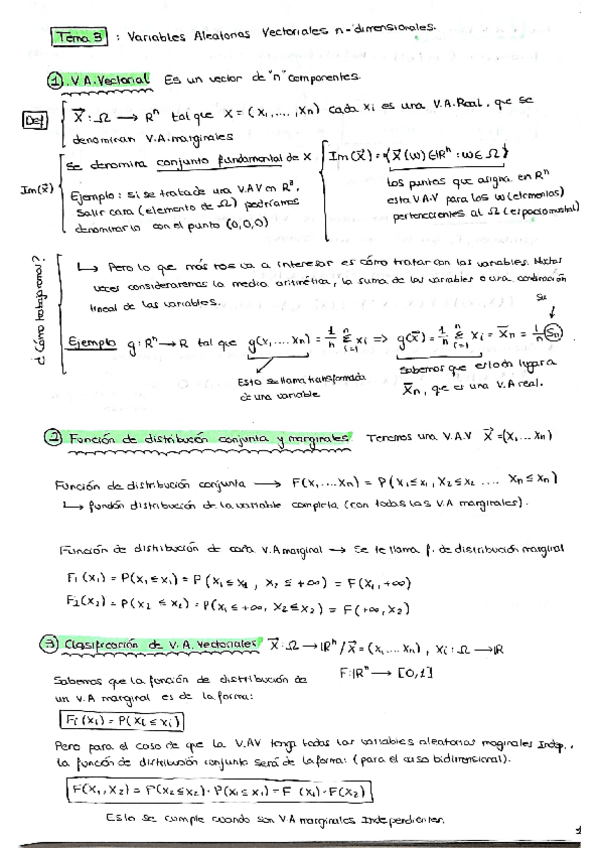 Tema 3 : Variables Aleatorias Vectoriales n-dimensionales.
① V.A. Vectorial Es un vector de "n" componentes.
Def X⃗ : Ω → Rⁿ tal que X = (X₁, ..., Xn) cada xi es una V.A. Real, que se
denominan V.A. marginales
Im(X⃗)
Se denomina conjunto fundamental de X
Ejemplo: si se trata de una V.A.V en R³,
Salir cara (elemento de Ω) podríamos
denominarlo con el punto (0,0,0)
Im(X⃗) = {X⃗(ω) ∈ IRⁿ : ω ∈ Ω}
Los puntos que asigna en Rⁿ
esta V.A.V para los ω (elementos)
pertenecientes al Ω (espacio muestral)
¿Cómo trabajaremos?
↳ Pero lo que más nos va a interesar es cómo tratar con las variables. Muchas
veces consideraremos la media aritmética, la suma de las variables o una combinación
lineal de las variables.
Su
Ejemplo g: Rⁿ → R tal que g(x₁, ..., xn) = 1/n Σⁿᵢ₌₁ xi => g(X⃗) = 1/n Σⁿᵢ₌₁ Xi = X̄n = 1/n Sn
Esto se llama transformada
de una variable
Sabemos que esto da lugar a
X̄n, que es una V.A real.
② Función de distribución conjunta y marginales Tenemos una V.A.V X⃗ = (X₁ ... Xn)
Función de distribución conjunta → F(x₁, ... xn) = P(X₁ ≤ x₁, X₂ ≤ x₂ .... Xn ≤ xn)
↳ función distribución de la variable completa (con todas las V.A marginales).
Función de distribución de cada V.A marginal → Se le llama f. de distribución marginal
F₁(x₁) = P(X₁ ≤ x₁) = P(X₁ ≤ x₁, X₂ ≤ +∞) = F(x₁, +∞)
F₂(x₂) = P(X₂ ≤ x₂) = P(X₁ ≤ +∞, X₂ ≤ x₂) = F(+∞, x₂)
③ Clasificación de V.A. Vectoriales X⃗ : Ω → IRⁿ / X⃗ = (X₁, ... Xn), Xi : Ω → IR
F: IRⁿ → [0,1]
Sabemos que la función de distribución de
un V.A marginal es de la forma:
Fi(xi) = P(Xi ≤ xi)
Pero para el caso de que la V.AV tenga todas las variables aleatorias marginales Indep.,
la función de distribución conjunta será de la forma: (para el caso bidimensional).
F(x₁, x₂) = P(X₂ ≤ x₂) · P(X₁ ≤ x₁) = F(x₁) · F(x₂)
Esto se cumple cuando son V.A marginales Independientes.
1